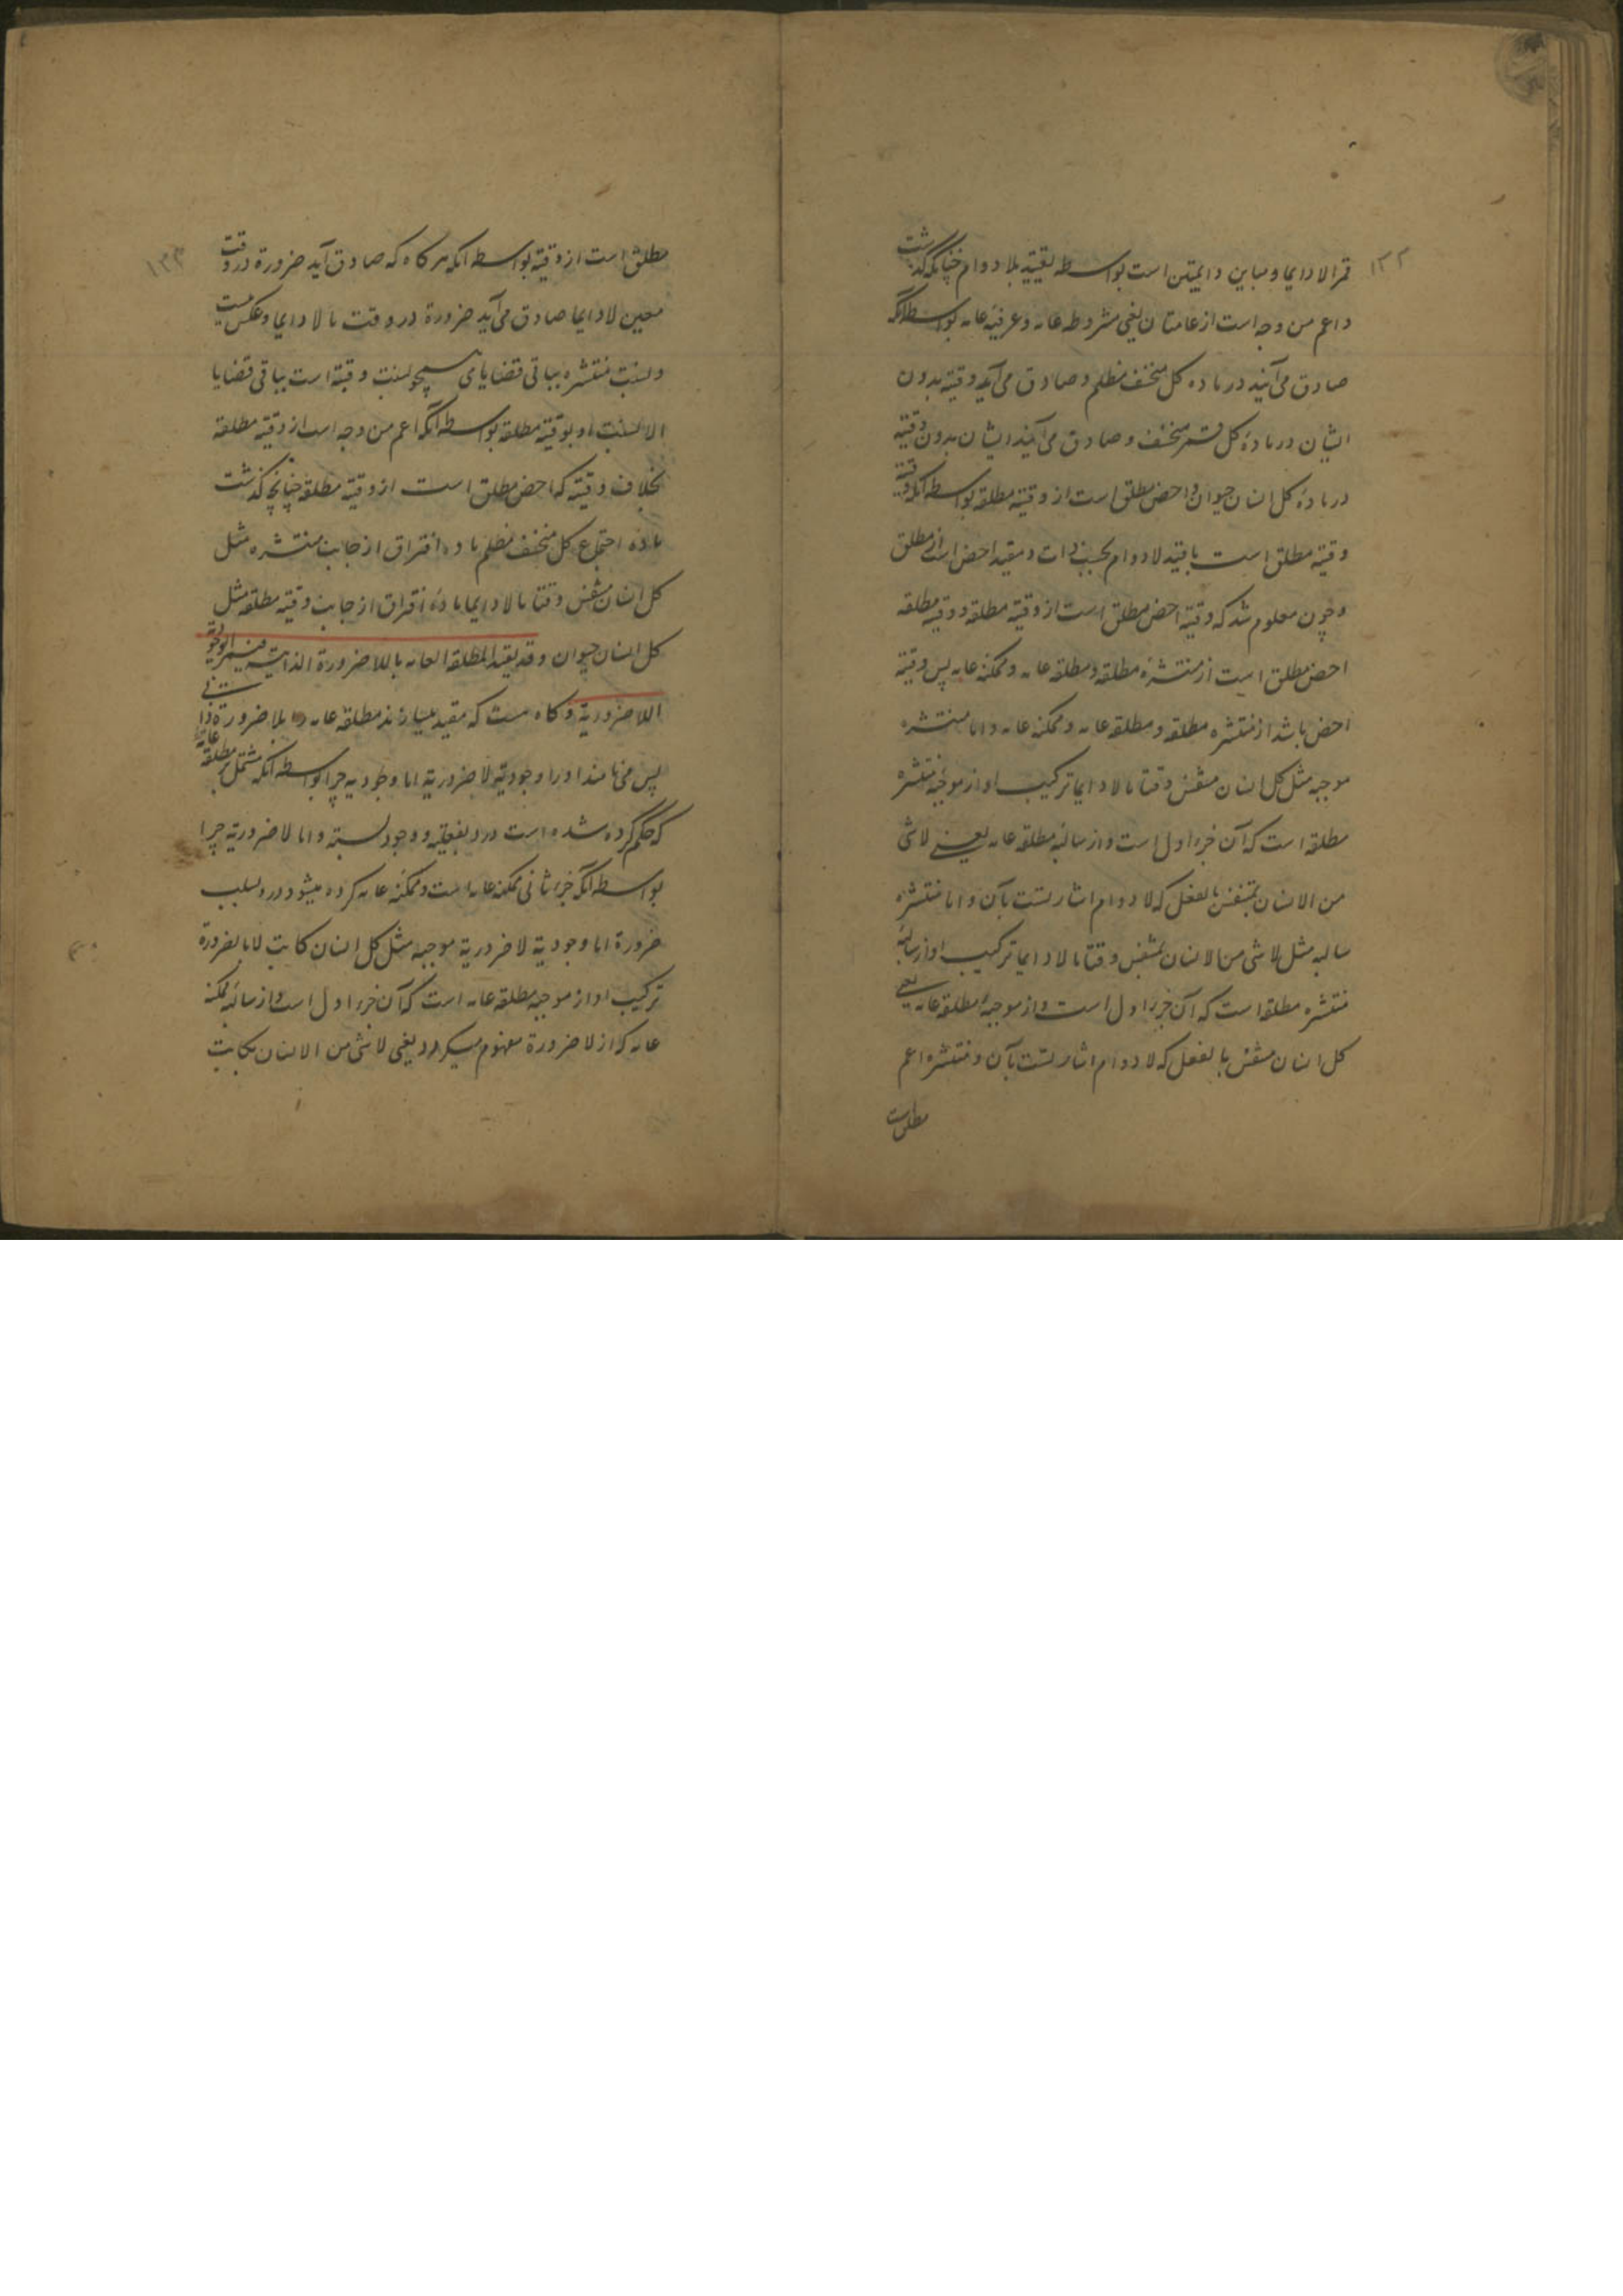 ۱۳۲
قمر لا دایما و مباین دایمتین است بواسطه تقیید بلا دوام چنانکه گذشت
و اعم من وجه است از عامتان یعنی مشروطه عامه و عرفیه عامه بواسطه آنکه
صادق می‌آیند در ماده کل منخسف مظلم و صادق می‌آید وقتیه بدون
ایشان در مادهٔ کل قمر منخسف و صادق می‌آیند ایشان بدون وقتیه
در مادهٔ کل انسان حیوان و اخص مطلق است از وقتیه مطلقه بواسطه آنکه وقتیه
وقتیه مطلق است با قید لادوام بحسب ذات و مقید اخص است از مطلق
و چون معلوم شد که وقتیه اخص مطلق است از وقتیه مطلقه و وقتیه مطلقه
اخص مطلق است از منتشره مطلقه و مطلقه عامه و ممکنه عامه پس وقتیه
اخص باشد از منتشره مطلقه و مطلقه عامه و ممکنه عامه و اما منتشره
موجبه مثل کل انسان متنفس وقتا ما لا دایما ترکیب او از موجبه منتشره
مطلقه است که آن جزء اول است و از سالبه مطلقه عامه یعنی لا شی
من الانسان بمتنفس بالفعل که لا دوام اشارتست بآن و اما منتشره
سالبه مثل لا شی من الانسان بمتنفس وقتا ما لا دایما ترکیب او از سالبه
منتشره مطلقه است که آن جزء اول است و از موجبه مطلقه عامه یعنی
کل انسان متنفس بالفعل که لا دوام اشارتست بآن و منتشره اعم
مطلق است
۱۳۳
مطلق است از وقتیه بواسطه آنکه هر گاه که صادق آید ضرورة در وقت
معین لا دایما صادق می‌آید ضرورة در وقت ما لا دایما و عکس نیست
و نسبت منتشره بباقی قضایا همچو نسبت وقتیه است بباقی قضایا
الا نسبت او بوقتیه مطلقه بواسطه آنکه اعم من وجه است از وقتیه مطلقه
بخلاف وقتیه که اخص مطلق است از وقتیه مطلقه چنانچه گذشت
ماده اجتماع کل منخسف مظلم ماده افتراق از جانب منتشره مثل
کل انسان متنفس وقتا ما لا دایما مادهٔ افتراق از جانب وقتیه مطلقه مثل
کل انسان حیوان و قد یقید المطلقة العامه باللاضرورة الذاتیة فتسمی الوجودیة
اللاضروریة و گاه هست که مقید میسازند مطلقه عامه را بلا ضرورة ذاتی
پس می‌نامند او را وجودیه لا ضروریه اما وجودیه چرا بواسطه آنکه مشتمل بر مطلقه عامه
که حکم کرده شده است در و بفعلیت و وجود نسبت و اما لا ضروریه چرا
بواسطه آنکه جزء ثانی ممکنه عامه است و ممکنه عامه کرده میشود در و بسلب
ضرورة اما وجودیة لا ضروریة موجبه مثل کل انسان کاتب لا بالضرورة
ترکیب او از موجبه مطلقه عامه است که آن جزء اول است و از سالبه ممکنه
عامه که از لا ضرورة مفهوم میگردد یعنی لا شی من الانسان بکاتب